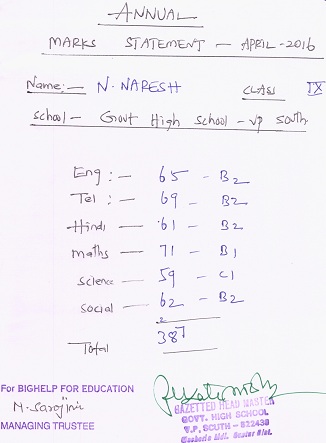 ANNUAL
MARKS STATEMENT - APRIL-2016
Name:- N. NARESH CLASS IX
School - Govt High School - VP South
Eng :- 65 - B2
Tel :- 69 - B2
Hindi - 61 - B2
maths - 71 - B1
science - 59 - C1
social - 62 - B2
Total 387
For BIGHELP FOR EDUCATION
M. Sarojini
MANAGING TRUSTEE
GAZETTED HEAD MASTER
GOVT. HIGH SCHOOL
V.P. SOUTH - 522438